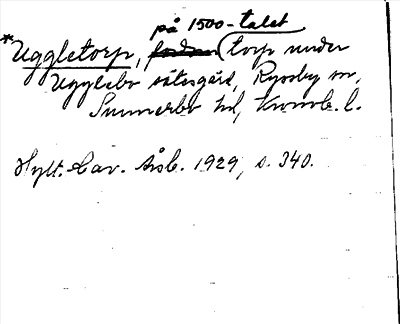 på 1500-talet
*Uggletorp, torp under
Ugglebo sätesgård, Ryssby sn,
Sunnerbo hd, Kronob. l.
Hylt. Cav. Årsb. 1929, s. 340.